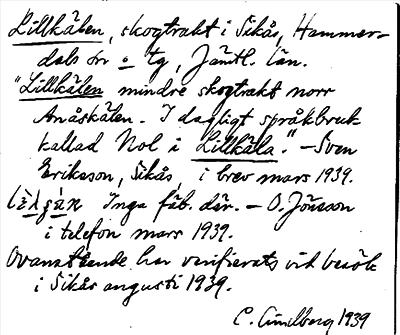 Lillkälen, skogtrakt i Sikås, Hammer-
dals sn o tg, Jämtl. län.
"Lillkälen mindre skogtrakt norr
Anåskälen. I dagligt språkbruk
kallad Nol i Lillkäla." – Sven
Eriksson, Sikås, i brev mars 1939.
Inga fäb. där. – O. Jönsson
i telefon mars 1939.
Ovanstående har verifierats vid besök
i Sikås augusti 1939.
C. 1939